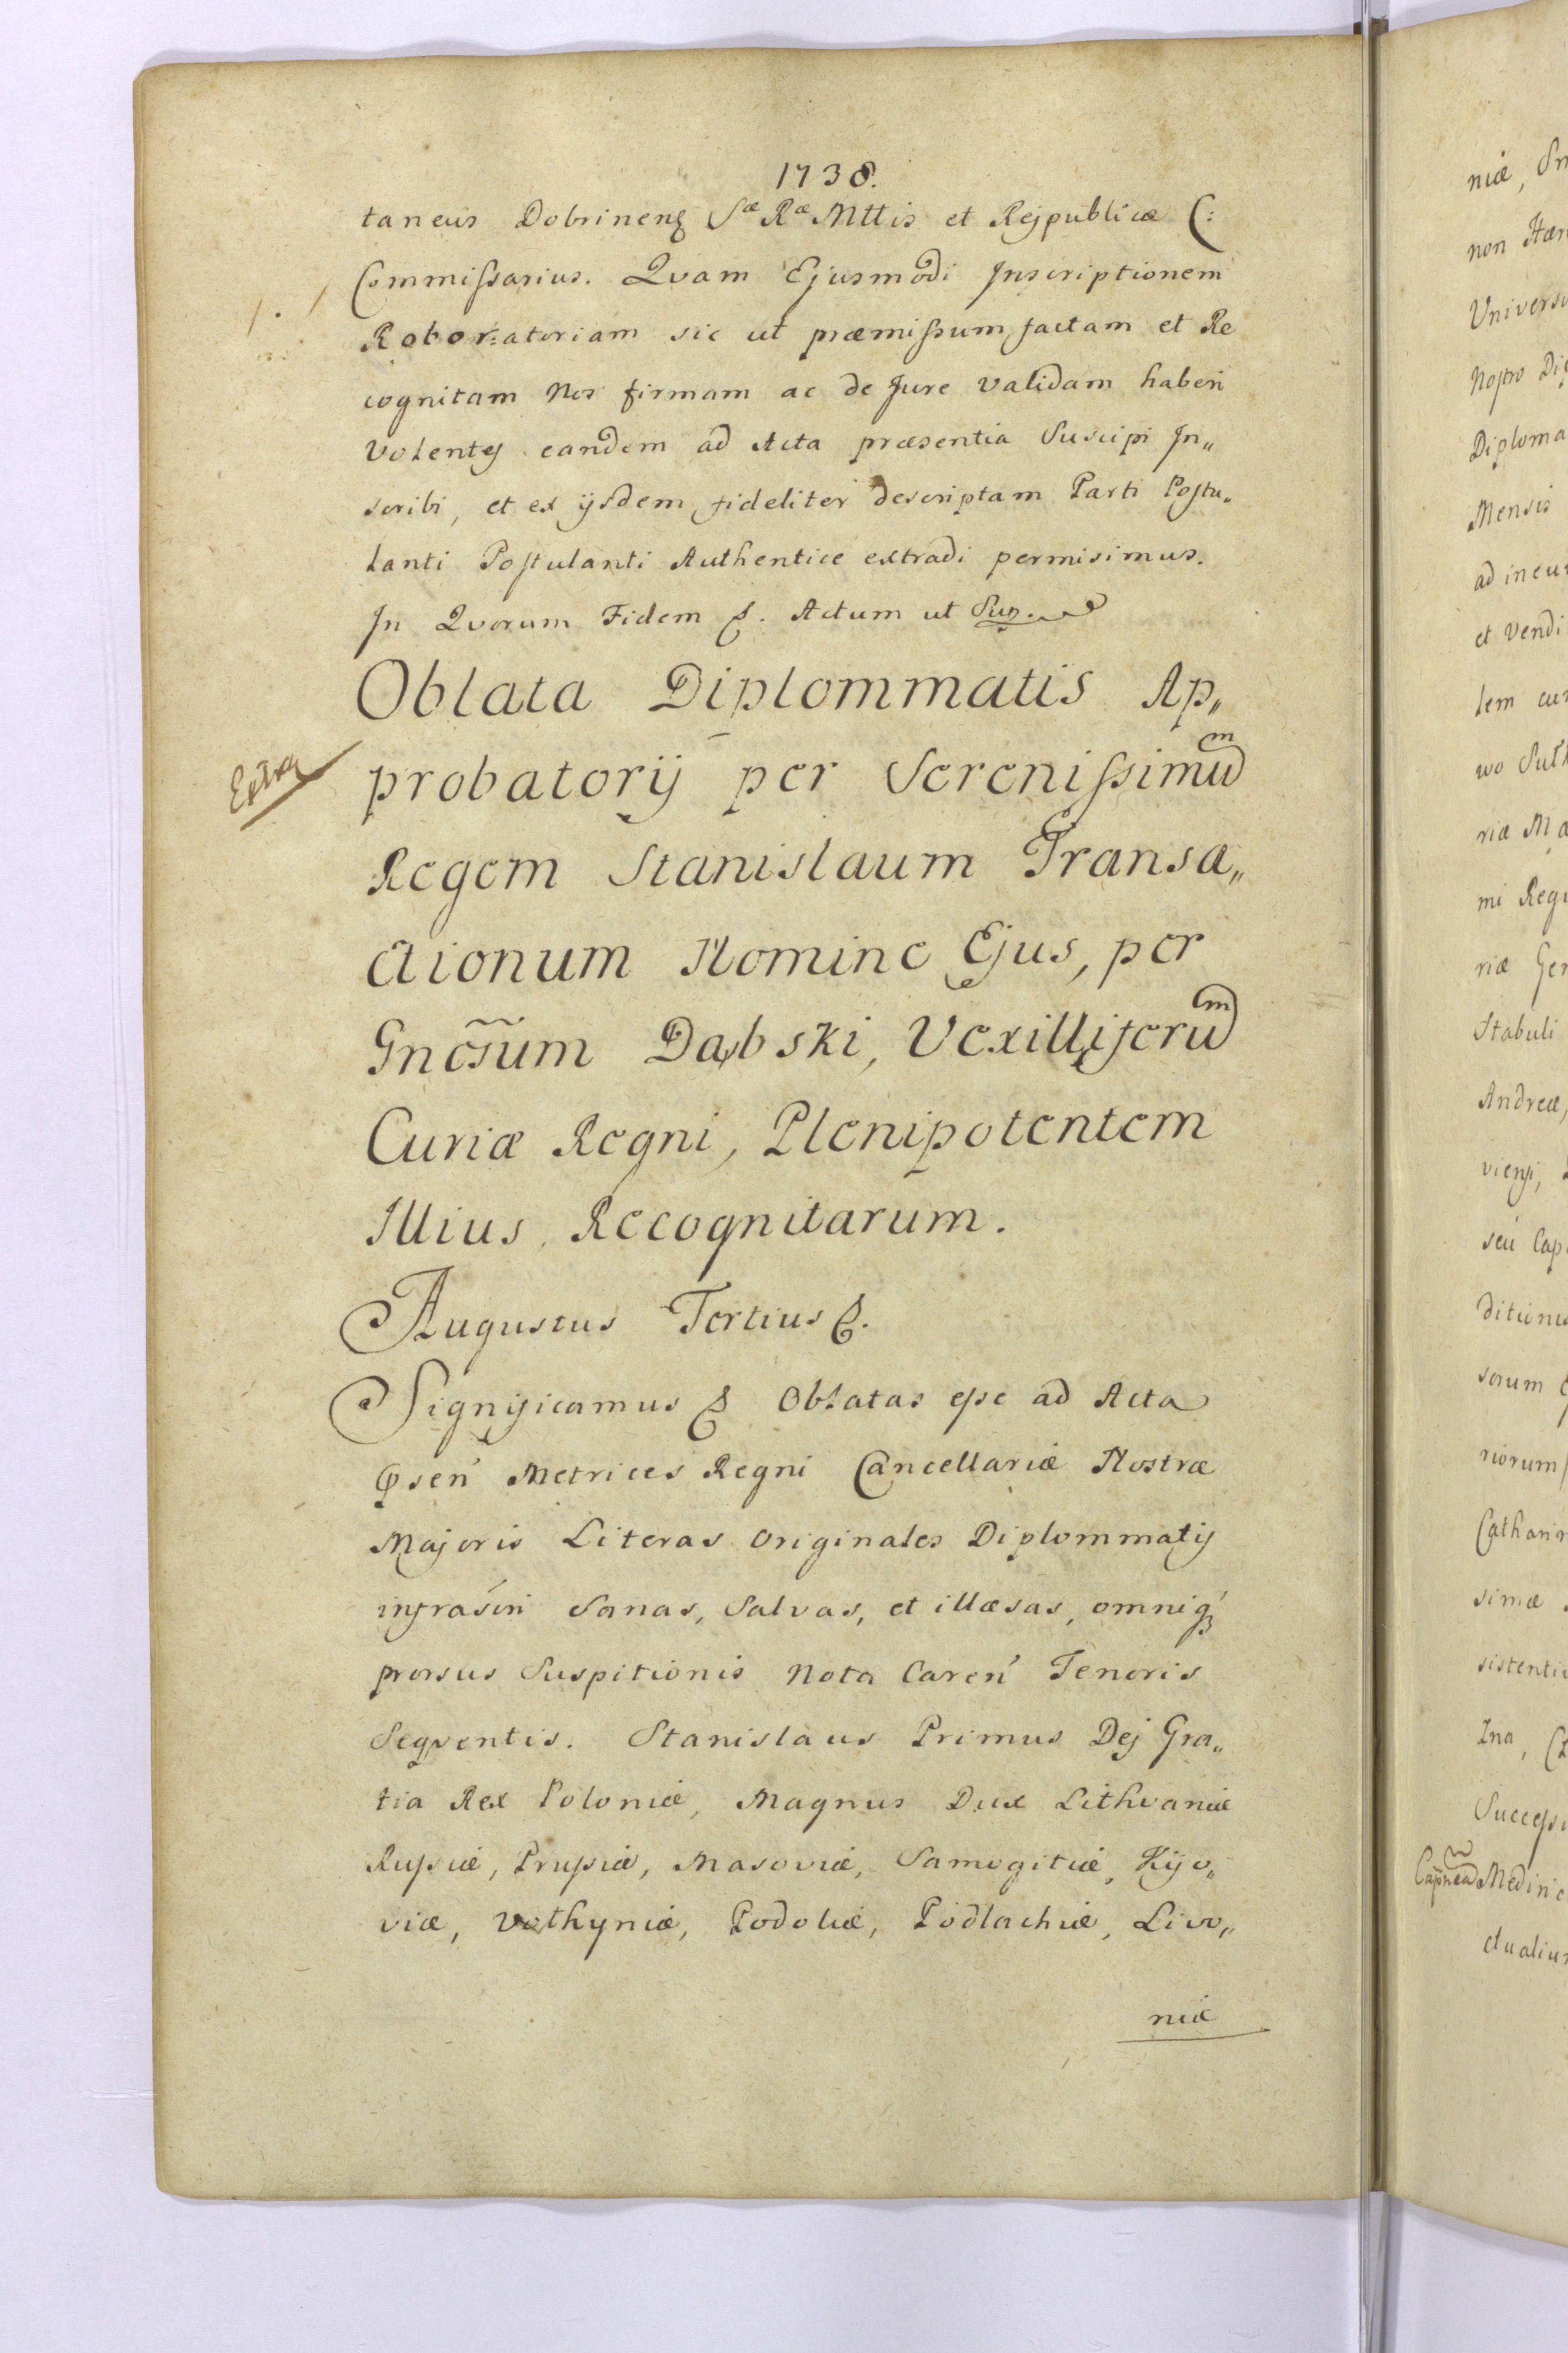 1738.
taneus Dobrinenq Sæ Ræ Mttis et Rejpublicæ C:
Commissarius. Qvam Ejusmodi Inscriptionem
Roboratoriam sic ut præmissum factam et Re
cognitam Nos firmam ac de Jure validam haberi
Volentes eandem ad Acta præsentia Suscipi In„
scribi, et ex ijsdem fideliter descriptam Parti Postu„
lanti Postulanti Authentice extradi permisimus.
In Qvorum Fidem &. Actum ut Sup.
Oblata Diplommatis Ap„
Extra
probatorij per Serenissimum
Regem Stanislaum Transa„
ctionum Nomine Ejus, per
Gnosum Dąbski, Vexilliferum
Curiæ Regni, Plenipotentem
Illius Recognitarum.
Augustus Tertius &.
Significamus & Oblatas esse ad Acta
Psen Metrices Regni Cancellariæ Nostræ
Majoris Literas Originales Diplommatis
infrasõri Sanas, Salvas, et illæsas, omniq
prorsus Suspitionis Nota Caren Tenoris
Seqventis. Stanislaus Primus Dej Gra„
tia Rex Poloniæ, Magnus Dux Lithvaniæ
Russiæ, Prussiæ, Masoviæ, Samogitiæ, Kijo„
viæ, Volhyniæ, Podoliæ, Podlachiæ, Livo„
niæ
niæ,
non
Universi
Nostro
Diploma
Mensis
ad ineun
et vendi
lem
wo
riæ
mi Regi
riæ Gen
Stabuli
Andreæ,
viensi,
seu Cap
ditionis
sorum
riorum
Catharin
simæ
sistenti
Ina,
Successi
Medinic
ctualium